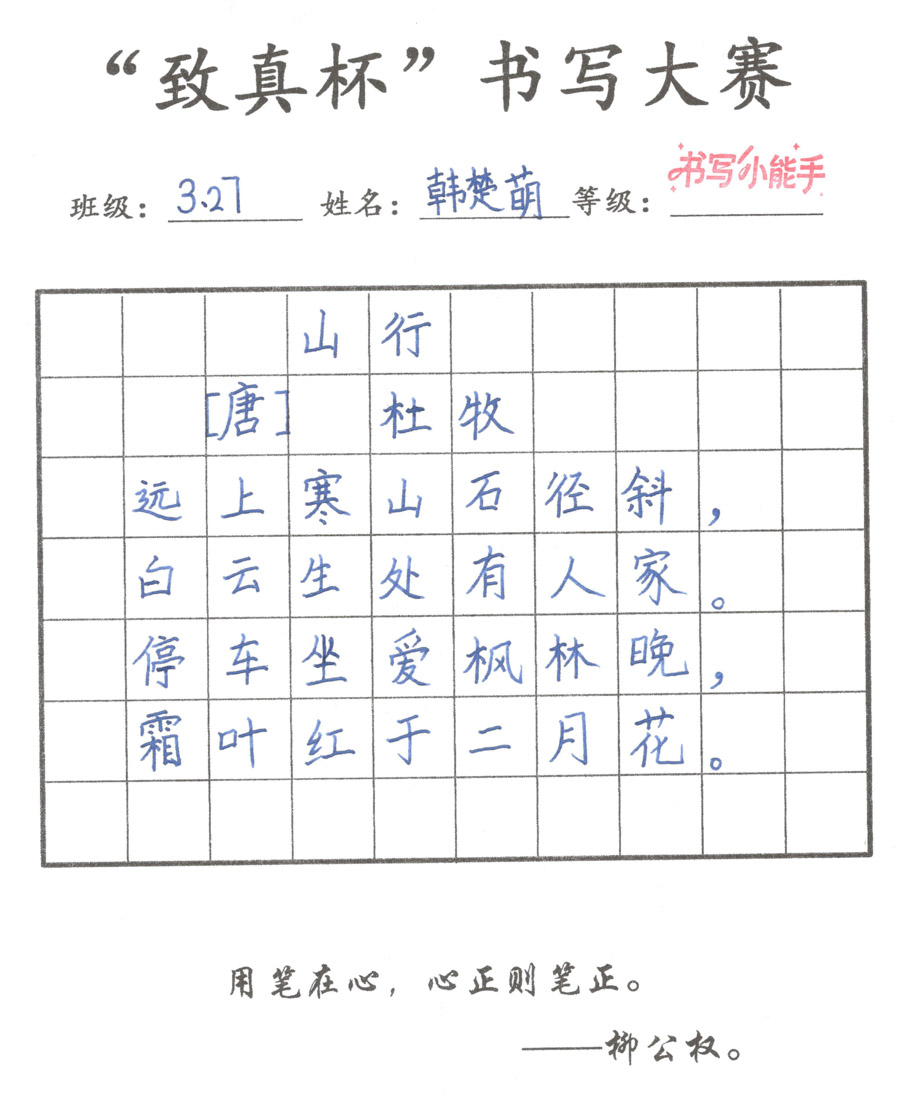 “致真杯”书写大赛
班级：3.27 姓名：韩楚萌 等级：书写小能手
山行
[唐] 杜牧
远上寒山石径斜，
白云生处有人家。
停车坐爱枫林晚，
霜叶红于二月花。
用笔在心，心正则笔正。
——柳公权。